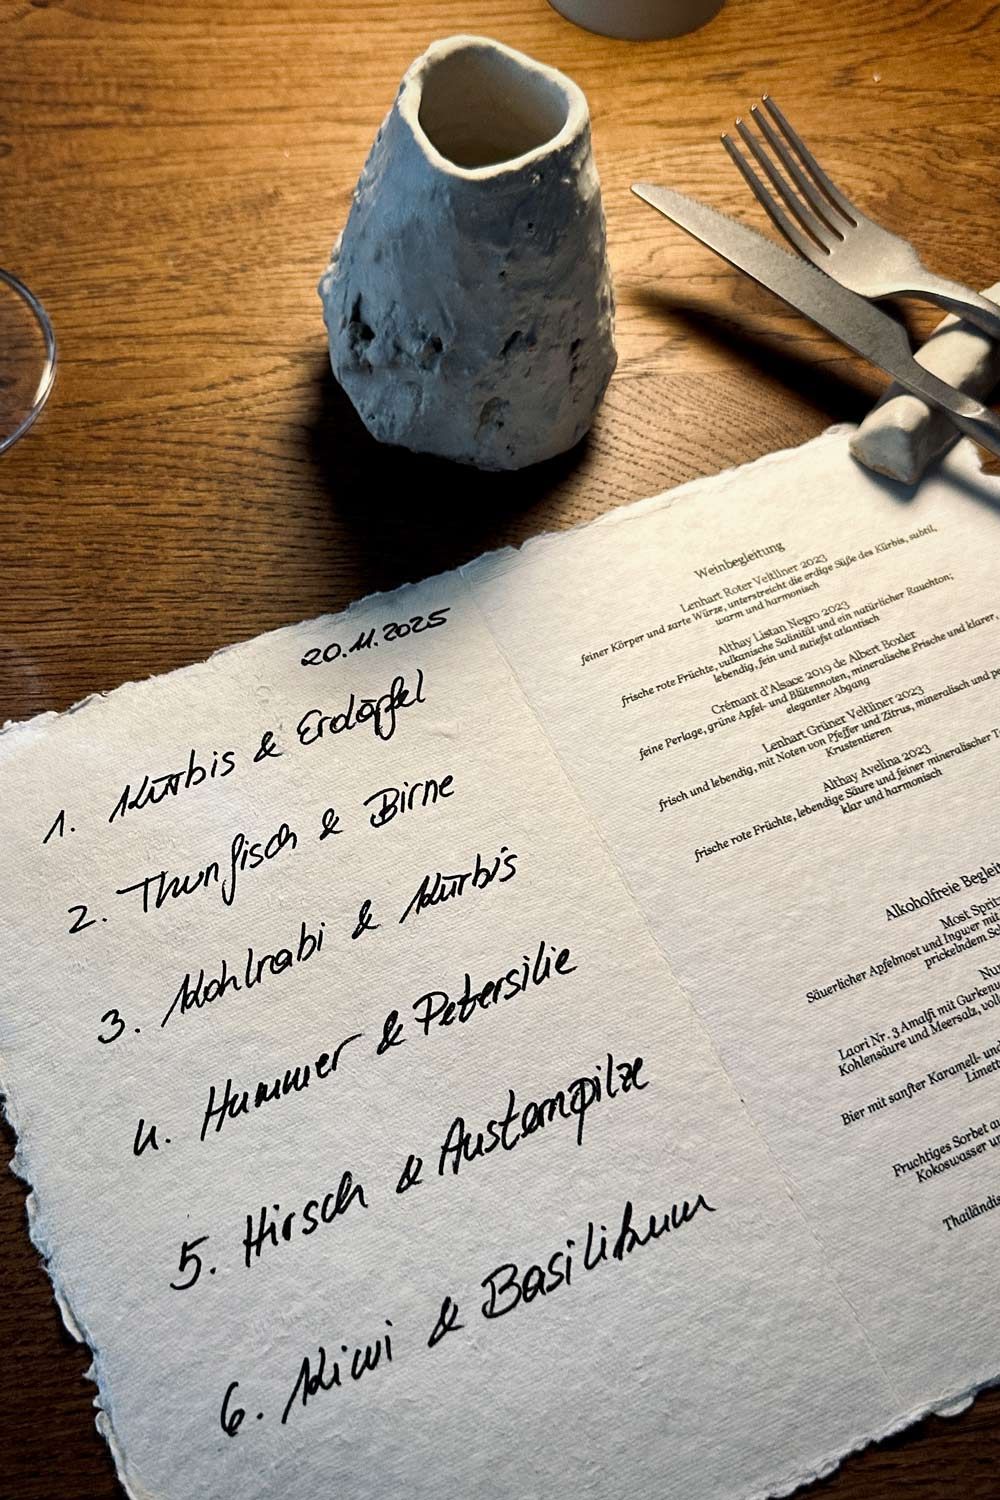 20.11.2025
1. Kürbis & Erdäpfel
2. Thunfisch & Birne
3. Kohlrabi & Kürbis
4. Hummer & Petersilie
5. Hirsch & Austernpilze
6. Kiwi & Basilikum
Weinbegleitung
Lenhart Roter Veltliner 2023
feiner Körper und zarte Würze, unterstreicht die erdige Süße des Kürbis, subtil,
warm und harmonisch
Althay Listan Negro 2023
frische rote Früchte, vulkanische Salinität und ein natürlicher Rauchton;
lebendig, fein und zutiefst atlantisch
Crémant d'Alsace 2019 de Albert Boxler
feine Perlage, grüne Apfel- und Blütennoten, mineralische Frische und klarer
eleganter Abgang
Lenhart Grüner Veltliner 2023
frisch und lebendig, mit Noten von Pfeffer und Zitrus, mineralisch und
Krustentieren
Althay Avelina 2023
frische rote Früchte, lebendige Säure und feiner mineralischer
klar und harmonisch
Alkoholfreie
Most
Säuerlicher Apfelmost und Ingwer mit
prickelndem
Laori Nr. 3 Amalfi mit
Kohlensäure und Meersalz,
Bier mit sanfter Karamell- und
Fruchtiges Sorbet
Kokoswasser